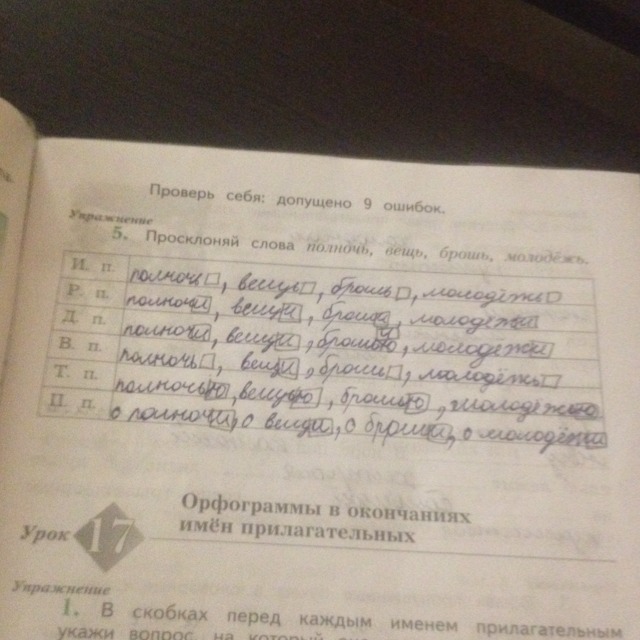 Проверь себя: допущено 9 ошибок.
Упражнение
5. Просклоняй слова полночь, вещь, брошь, молодёжь.
И. п. полночь, вещь, брошь, молодёжь
Р. п. полночи, вещи, броши, молодёжи
Д. п. полночи, вещи, молодёжи
В. п. полночь, молодёжь
Т. п. полночью, брошью, молодёжью
П. п. о полночи, о вещи, о броши, о молодёжи
Орфограммы в окончаниях
Урок 17 имён прилагательных
Упражнение
1. В скобках перед каждым именем прилагательным
укажи вопрос, на который